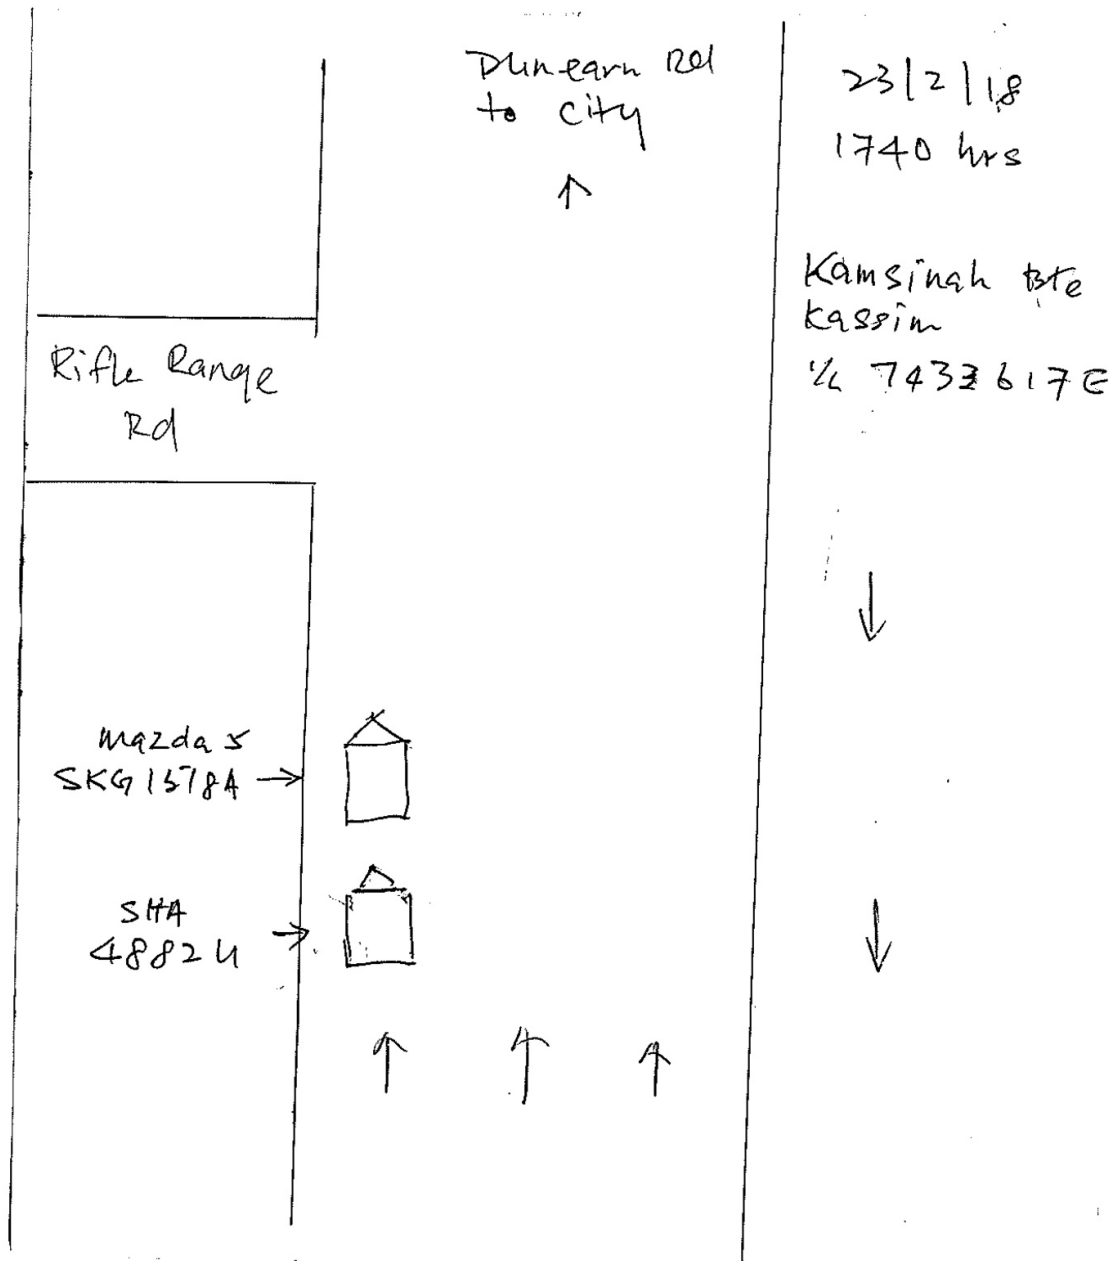 Dunearn Rd
to city
23/2/18
1740 hrs
Kamsinah Bte
Kassim
Rifle Range
Rd
Mazda 5
SKG 1578A
SHA
4882U